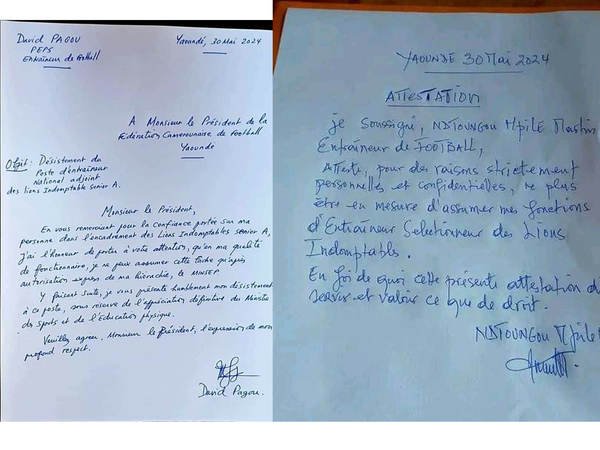 David PAGOU
PEPS
Entraîneur de Football
Yaoundé, 30 Mai 2024
A Monsieur le Président de la
Fédération Camerounaise de Football
Yaoundé
Objet : Désistement du
Poste d'entraîneur
National adjoint
des lions Indomptable senior A.
Monsieur le Président,
En vous remerciant pour la confiance portée sur ma
personne dans l'encadrement des Lions Indomptables senior A,
j'ai l'honneur de porter à votre attention, qu'en ma qualité
de fonctionnaire, je ne peux assumer cette tâche qu'après
autorisation express de ma hiérachie, le MINSEP
Y faisant suite, je vous présente humblement mon désistement
à ce poste, sous réserve de l'appréciation définitive du Ministre
des sports et de l'Education physique.
Veuillez agréer, Monsieur le Président, l'expression de mon
profond respect.
David Pagou.
YAOUNDE 30 Mai 2024
ATTESTATION
je soussigné, NDTOUNGOU MPILE Martin
Entraîneur de FOOTBALL,
Atteste, pour des raisons strictement
personnelles et confidentielles, ne plus
être en mesure d'assumer mes fonctions
d'Entraîneur Selectionneur des Lions
Indomptables.
En foi de quoi cette présente attestation
servir et valoir ce que de droit.
NDTOUNGOU MPILE